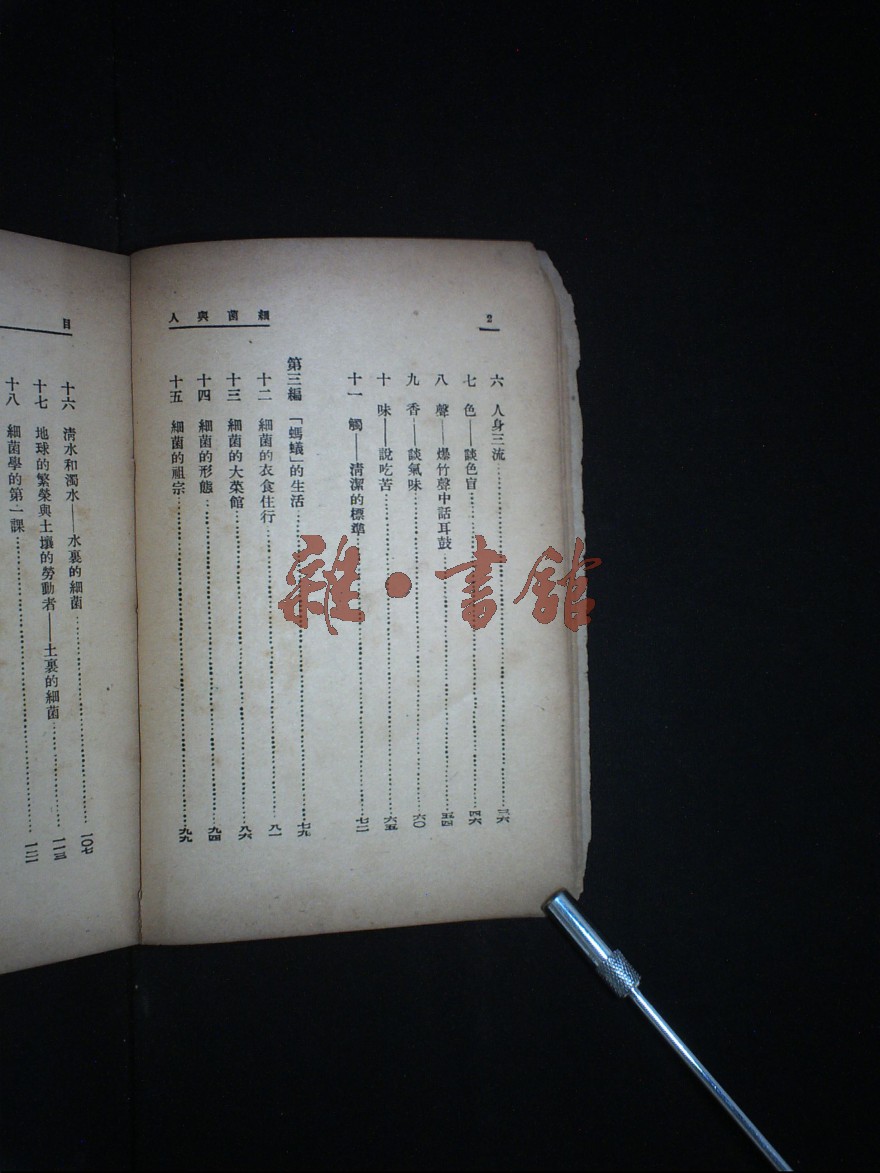 2
細菌與人
六 人身三流……三六
七 色——談色盲……四六
八 聲——爆竹聲中話耳鼓……五四
九 香——談氣味……六〇
十 味——說吃苦……六五
十一 觸——清潔的標準……七二
第三編 「螞蟻」的生活……七九
十二 細菌的衣食住行……八一
十三 細菌的大菜館……八六
十四 細菌的形態……九四
十五 細菌的祖宗……九九
目
十六 清水和濁水——水裏的細菌……一〇七
十七 地球的繁榮與土壤的勞動者——土裏的細菌……一一三
十八 細菌學的第一課……一二一
雜·書館